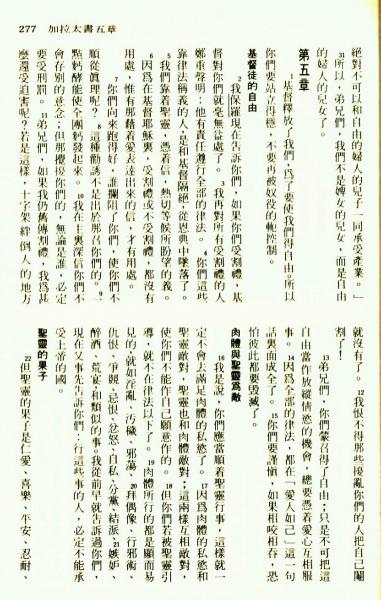 277 加拉太書五章
絕對不可以和自由的婦人的兒子一同承受產業。」
31所以,弟兄們,我們不是婢女的兒女,而是自由
的婦人的兒女了。
第五章
1基督釋放了我們,爲了要使我們得自由。所以
你們要站立得穩,不要再被奴役的軛控制。
基督徒的自由
2我保羅現在告訴你們,如果你們受割禮,基
督對你們就毫無益處了。3我再對所有受割禮的人
鄭重聲明:他有責任遵行全部的律法。4你們這些
靠律法稱義的人,是和基督隔絕,從恩典中墜落了。
5我們靠着聖靈,憑着信,熱切等候所盼望的義。
6因爲在基督耶穌裏,受割禮或不受割禮,都沒有
用處,惟有那藉着愛表達出來的信,才有用處。
7你們向來跑得好,誰攔阻了你們,使你們不
順從眞理呢?8這種勸誘不是出於那召你們的。9一
點麪酵能使全團麪發起來。10我在主裏深信你們不
會存別的意念;但那攪擾你們的,無論是誰,必定
要受刑罰。11弟兄們,如果我仍舊傳割禮,我爲甚
麼還受迫害呢?若是這樣,十字架絆倒人的地方
就沒有了。12我恨不得那些擾亂你們的人把自己閹
割了!
13弟兄們,你們蒙召得了自由;只是不可把這
自由當作放縱情慾的機會,總要憑着愛心互相服
事。14因爲全部的律法,都在「愛人如己」這一句
話裏面成全了。15你們要謹愼,如果相咬相吞,恐
怕彼此都要毀滅了。
肉體與聖靈爲敵
16我是說,你們應當順着聖靈行事,這樣就一
定不會去滿足肉體的私慾了。17因爲肉體的私慾和
聖靈敵對,聖靈也和肉體敵對;這兩樣互相敵對,
使你們不能作自己願意作的。18但你們若被聖靈引
導,就不在律法以下了。19肉體所行的都是顯而易
見的,就如淫亂、汚穢、邪蕩、20拜偶像、行邪術、
仇恨、爭競、忌恨、忿怒、自私、分黨、結派、21嫉妒、
醉酒、荒宴,和類似的事。我從前早就告訴過你們,
現在又事先告訴你們:行這些事的人,必定不能承
受上帝的國。
聖靈的果子
22但聖靈的果子是仁愛、喜樂、平安、忍耐、